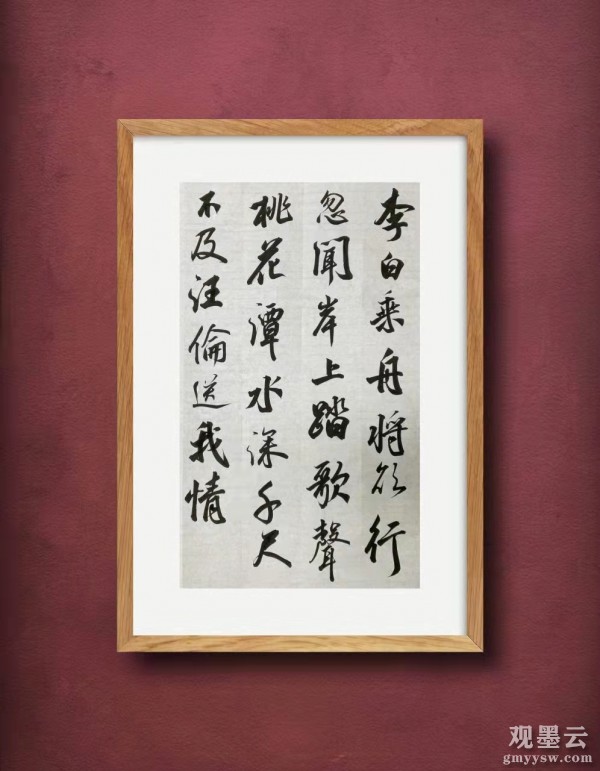 李白乘舟将欲行
忽聞岸上踏歌聲
桃花潭水深千尺
不及汪倫送我情
观墨云
gmyysw.com